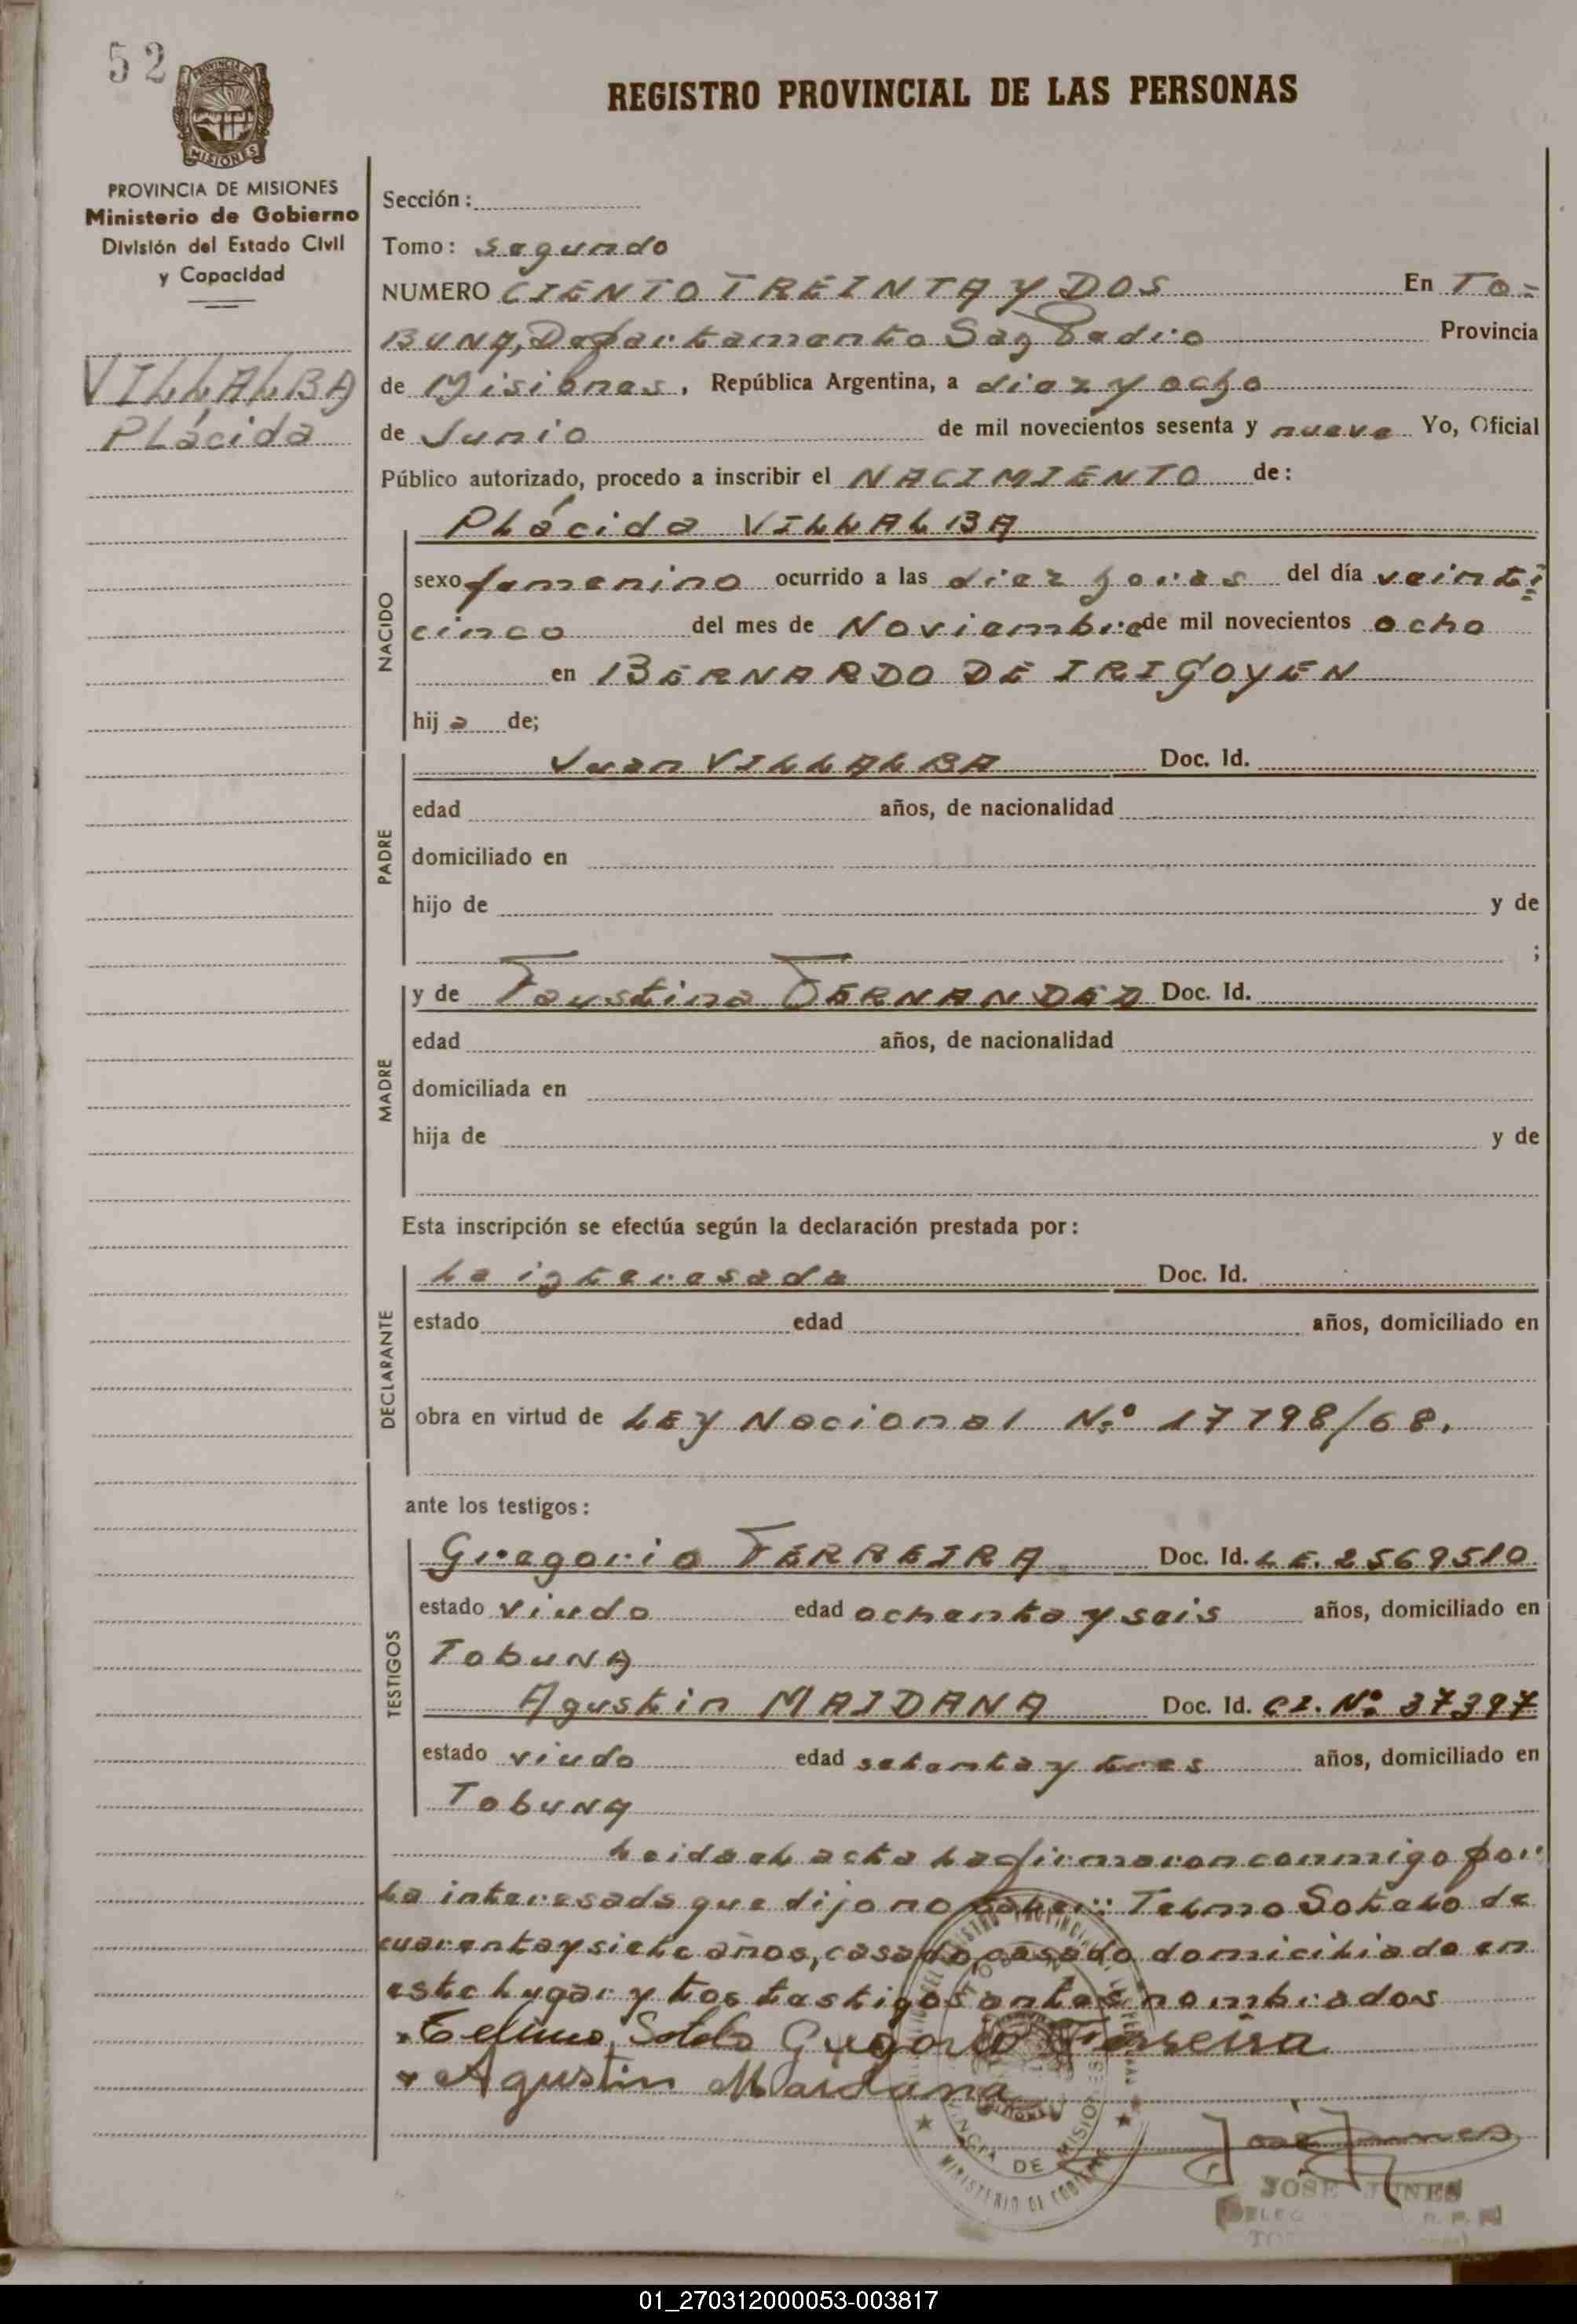 52
PROVINCIA DE
MISIONES
REGISTRO PROVINCIAL DE LAS PERSONAS
PROVINCIA DE MISIONES
Ministerio de Gobierno
División del Estado Civil
y Capacidad
VILLALBA
Plácida
Sección:
Tomo: segundo
NUMERO CIENTO TREINTA Y DOS En TO=
BUNA, Departamento San Pedro Provincia
de Misiones, República Argentina, a diez y ocho
de Junio de mil novecientos sesenta y nueve Yo, Oficial
Público autorizado, procedo a inscribir el NACIMIENTO de:
NACIDO
Plácida VILLALBA
sexo femenino ocurrido a las diez horas del día veinti=
cinco del mes de Noviembre de mil novecientos ocho
en BERNARDO DE IRIGOYEN
hija de;
PADRE
Juan VILLALBA Doc. Id.
edad años, de nacionalidad
domiciliado en
hijo de y de
;
MADRE
y de Faustina FERNANDEZ Doc. Id.
edad años, de nacionalidad
domiciliada en
hija de y de
Esta inscripción se efectúa según la declaración prestada por:
DECLARANTE
La interesada Doc. Id.
estado edad años, domiciliado en
obra en virtud de LEY Nacional N.º 17798/68.
ante los testigos:
TESTIGOS
Gregorio FERREIRA Doc. Id. L.E. 2569510
estado viudo edad ochenta y seis años, domiciliado en
TobuNA
Agustin MAIDANA Doc. Id. CI. Nº 37397
estado viudo edad setenta y tres años, domiciliado en
TobuNA
Leida el acta la firmaron conmigo por
la interesada que dijo no saber: Telmo Sotelo de
cuarenta y siete años, casado, casado domiciliado en
este lugar y los testigos antes nombrados
Telmo Sotelo Gregorio Ferreira
Agustin Maidana
José Junes
PROVINCIA DE MISIONES
MINISTERIO DE GOBIERNO
JOSE JUNES
01_270312000053-003817